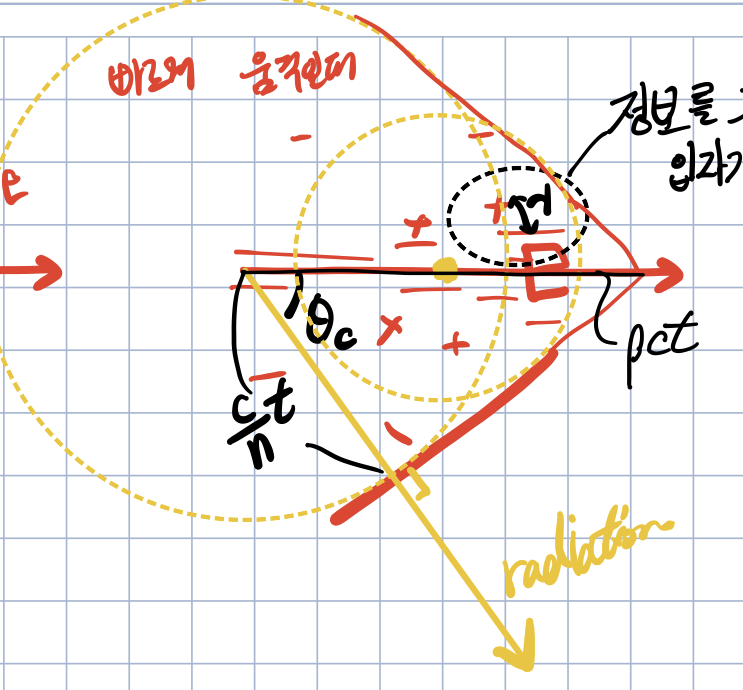 빠르게 움직일때
정보를
입자가
θc
βct
ct/n
radiation